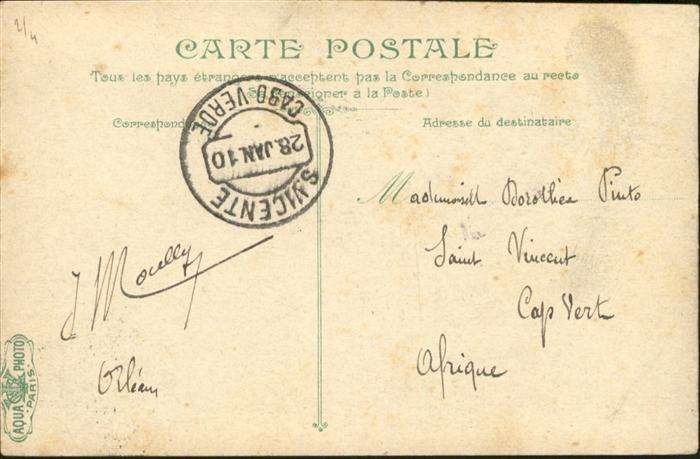 2/4
CARTE POSTALE
Tous les pays étrangers n'acceptent pas la Correspondance au recto
(Se renseigner à la Poste)
Correspond
Adresse du destinataire
S. VICENTE
28.JAN.10
CABO VERDE
Mademoiselle Dorothéa Pinto
Saint Vincent
Cap Vert
Afrique
J Moully
Orléans
AQUA PHOTO
PARIS